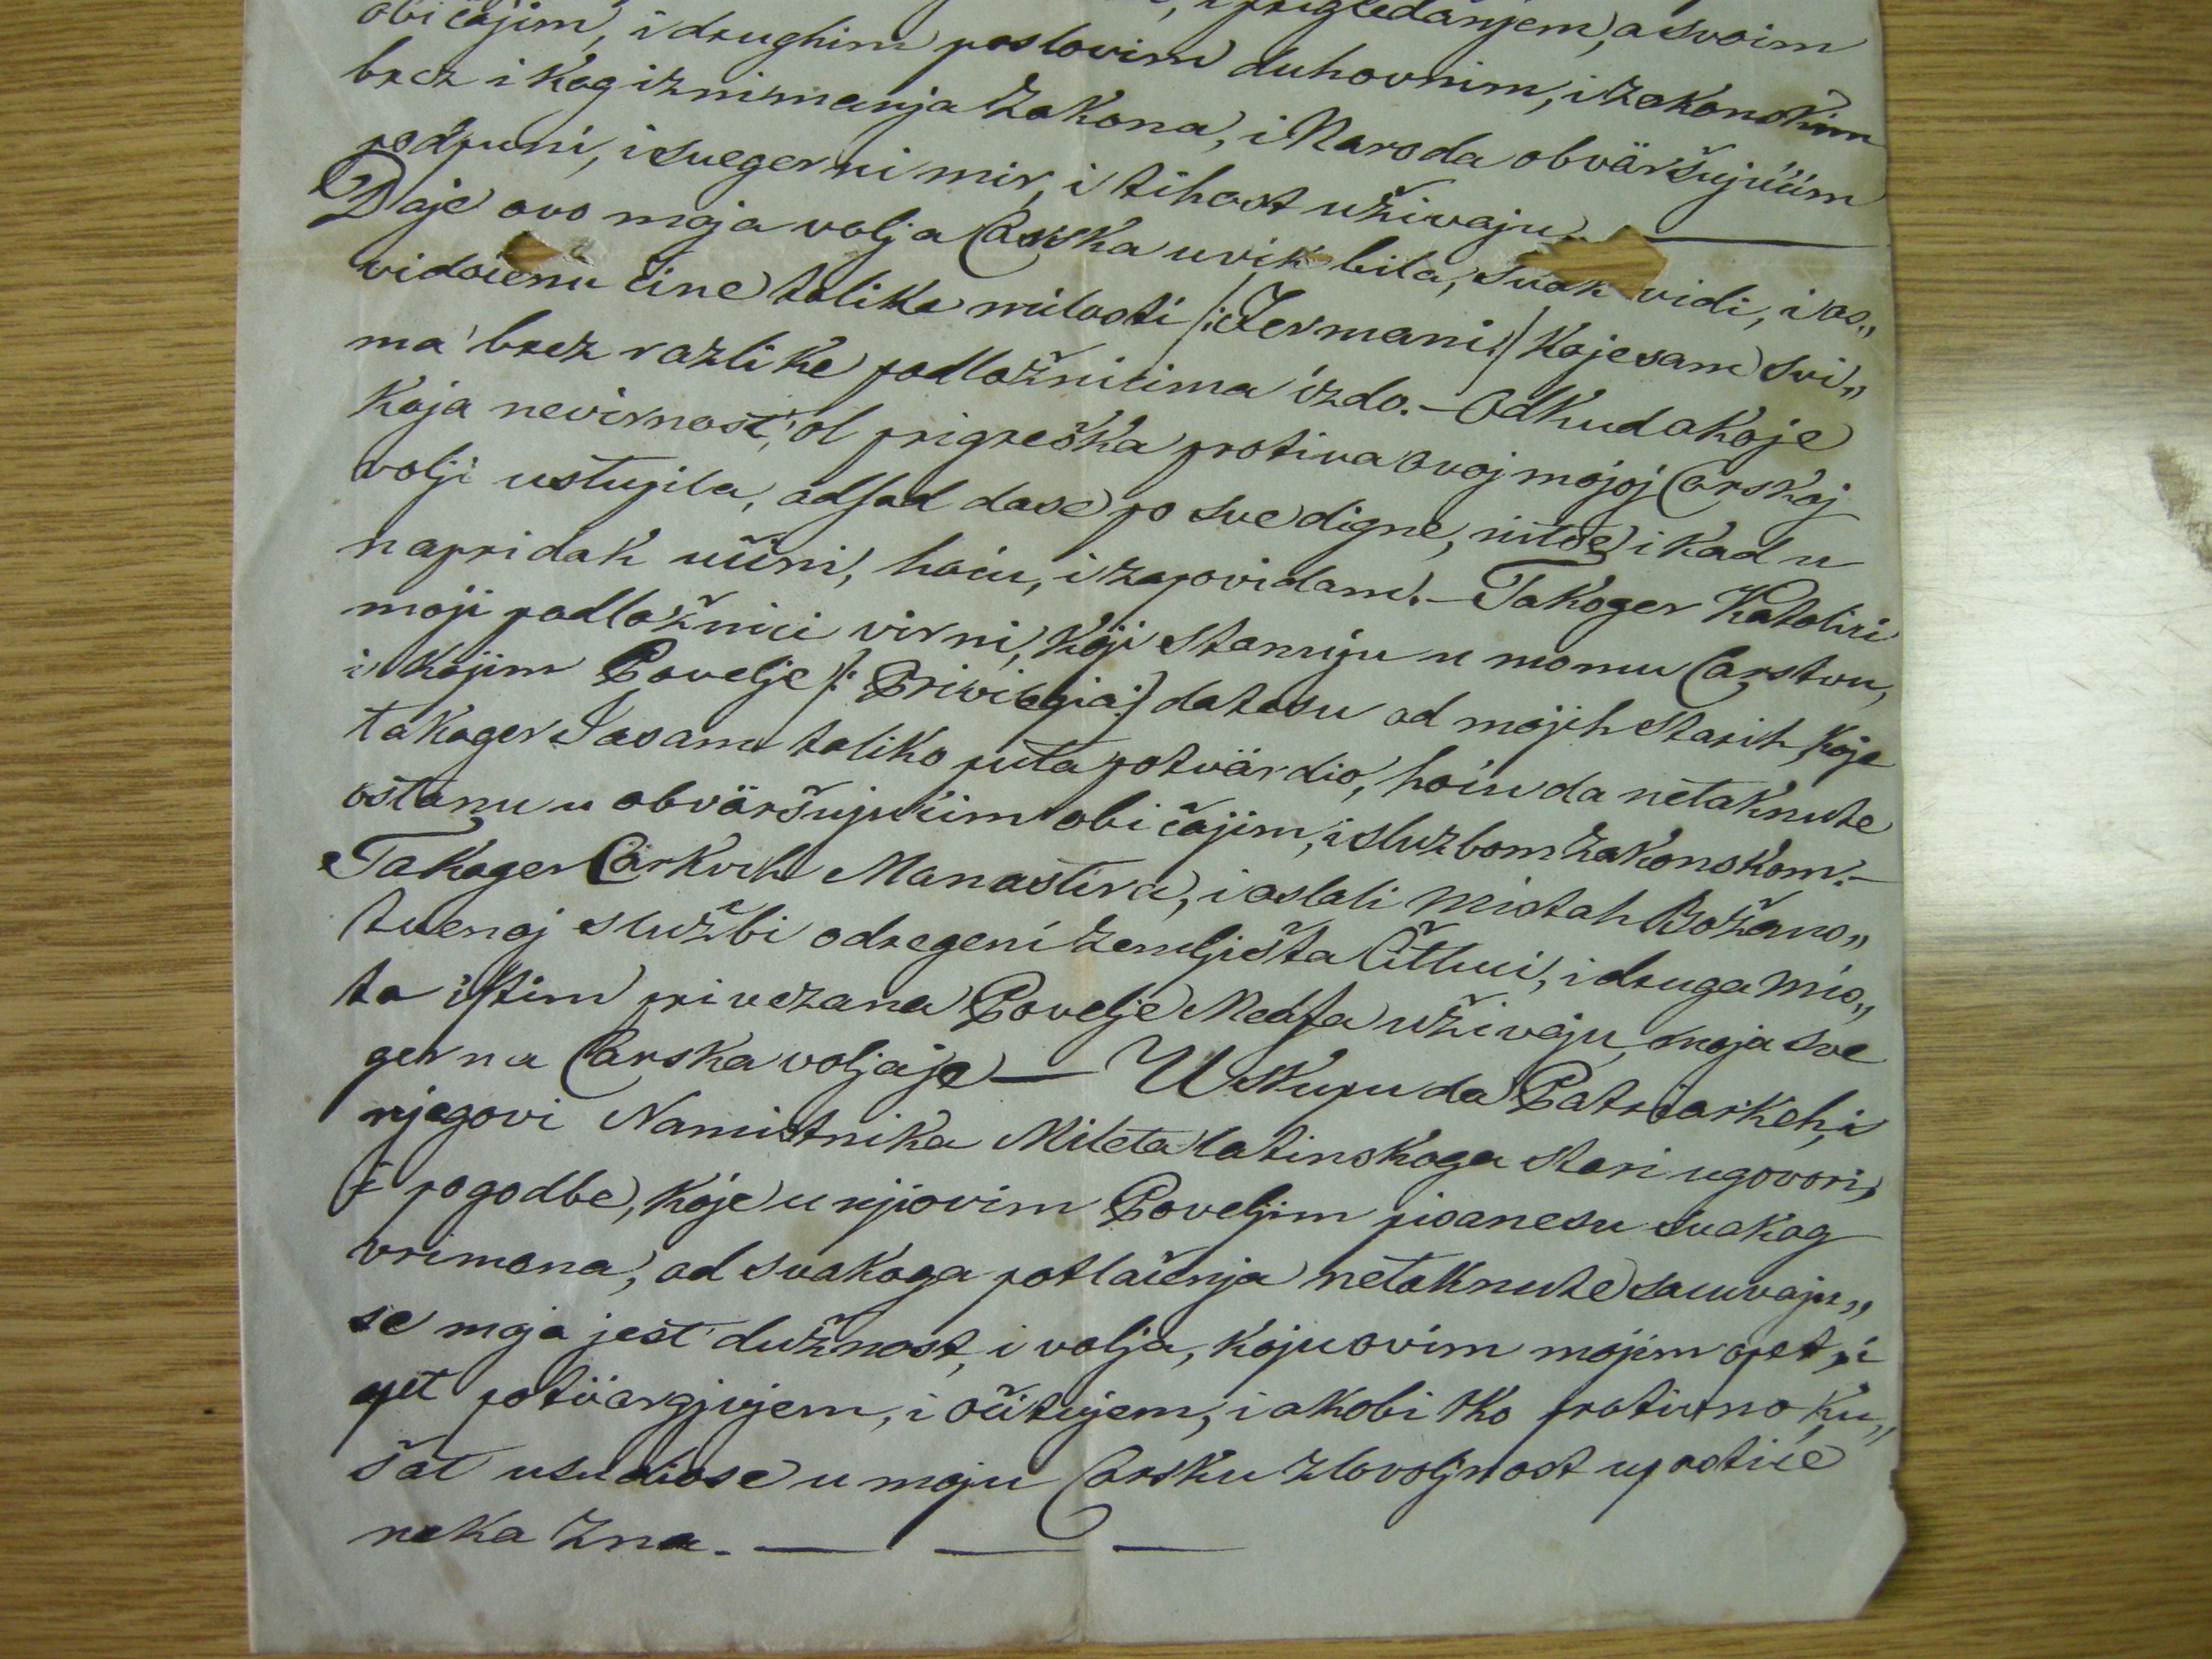 i prigledanjem, a svoim
običajim, i drughim poslovim duhovnim, i zakonskim
brez ikog iznimanja Zakona, i Naroda obväršujućim
podpuni, i suegerni mir, i tihost uživaju. —
Daje ovo moja volja Carska uvik bila, svak vidi, i os„
vidočenu čine tolike milosti /: Fermani :/ koje sam svi„
ma brez razlike podložnicima izdo. — Odkud akoje
koja nevirnost, ol prigreška protiva ovoj mojoj Carskoj
volji ustupila, odsad dase po sve digne, nitse ikad u
napridak učini, hoću, i zapovidam. — Takoger Katolici
moji podložnici virni, koji stanuju u momu Carstvu,
i kojim Povelje /: Privilegia :/ datesu od mojih starih, koje
takoger Jasam toliko puta potvärdio, hoću da netaknute
ostanu u obväršujućim običajim, i službom Zakonskom. —
Takoger Carkvih Manastira, i ostali mistah Božans„
tvenoj službi odregeni Zemljišta Čitluci, i druga mis„
ta istim privezana Povelje Meafa uživaju, moja sve
gerna Carska voljaje — U skupu da Patriarkeh, i
njegovi Namistnika Mileta latinskoga stari ugovori,
i pogodbe, koje u njiovim Poveljim pisanesu svakog
vrimena, od svakoga potlačenja netaknute sačuvaju„
se moja jest dužnost, i volja, koju ovim mojim opet, i
opet potvärgjujem, i očitujem, i akobi tko protivno ku„
šat usudiose u moju Carsku zlovoljnost upastiće
neka zna. — — —